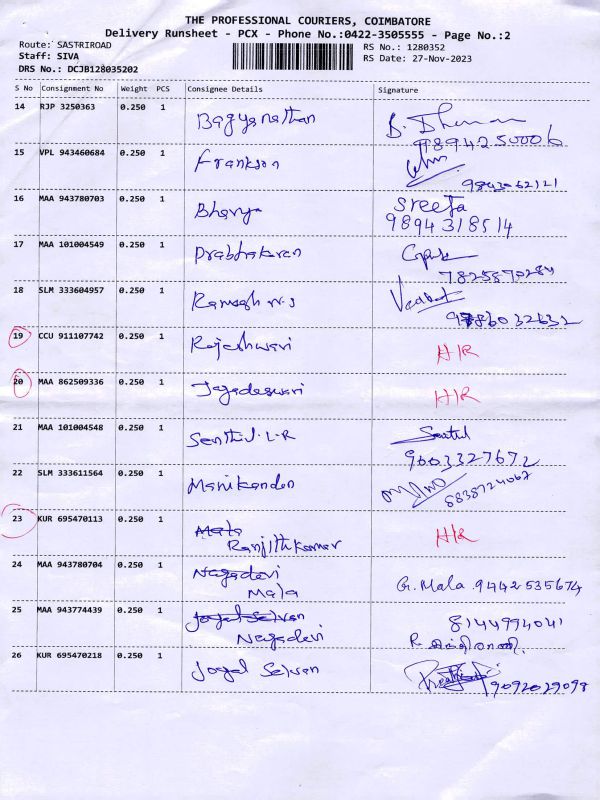 THE PROFESSIONAL COURIERS, COIMBATORE
Delivery Runsheet - PCX - Phone No.:0422-3505555 - Page No.:2
Route: SASTRIROAD RS No.: 1280352
Staff: SIVA RS Date: 27-Nov-2023
DRS No.: DCJB128035202
S No Consignment No Weight PCS Consignee Details Signature
14 RJP 3250363 0.250 1 Bagyanathan
9894250006
15 VPL 943460684 0.250 1 Frankson
9843062121
16 MAA 943780703 0.250 1 Bhavya Sreeja
9894318514
17 MAA 101004549 0.250 1 Prabhakaran
7825870284
18 SLM 333604957 0.250 1 Ramesh N.S
19 CCU 911107742 0.250 1 Rajeshwari H/R
20 MAA 862509336 0.250 1 Jagadeswari H/R
21 MAA 101004548 0.250 1 Senthil.L.R
9603327672
22 SLM 333611564 0.250 1 Manikandan
8838724067
23 KUR 695470113 0.250 1 Mala H/R
Ranjithkumar
24 MAA 943780704 0.250 1 Nagadevi G. Mala. 9442535674
Mala
25 MAA 943774439 0.250 1 Joyal Selvan 8144994041
Nagadevi R
26 KUR 695470218 0.250 1 Joyal Selvan 9092029098